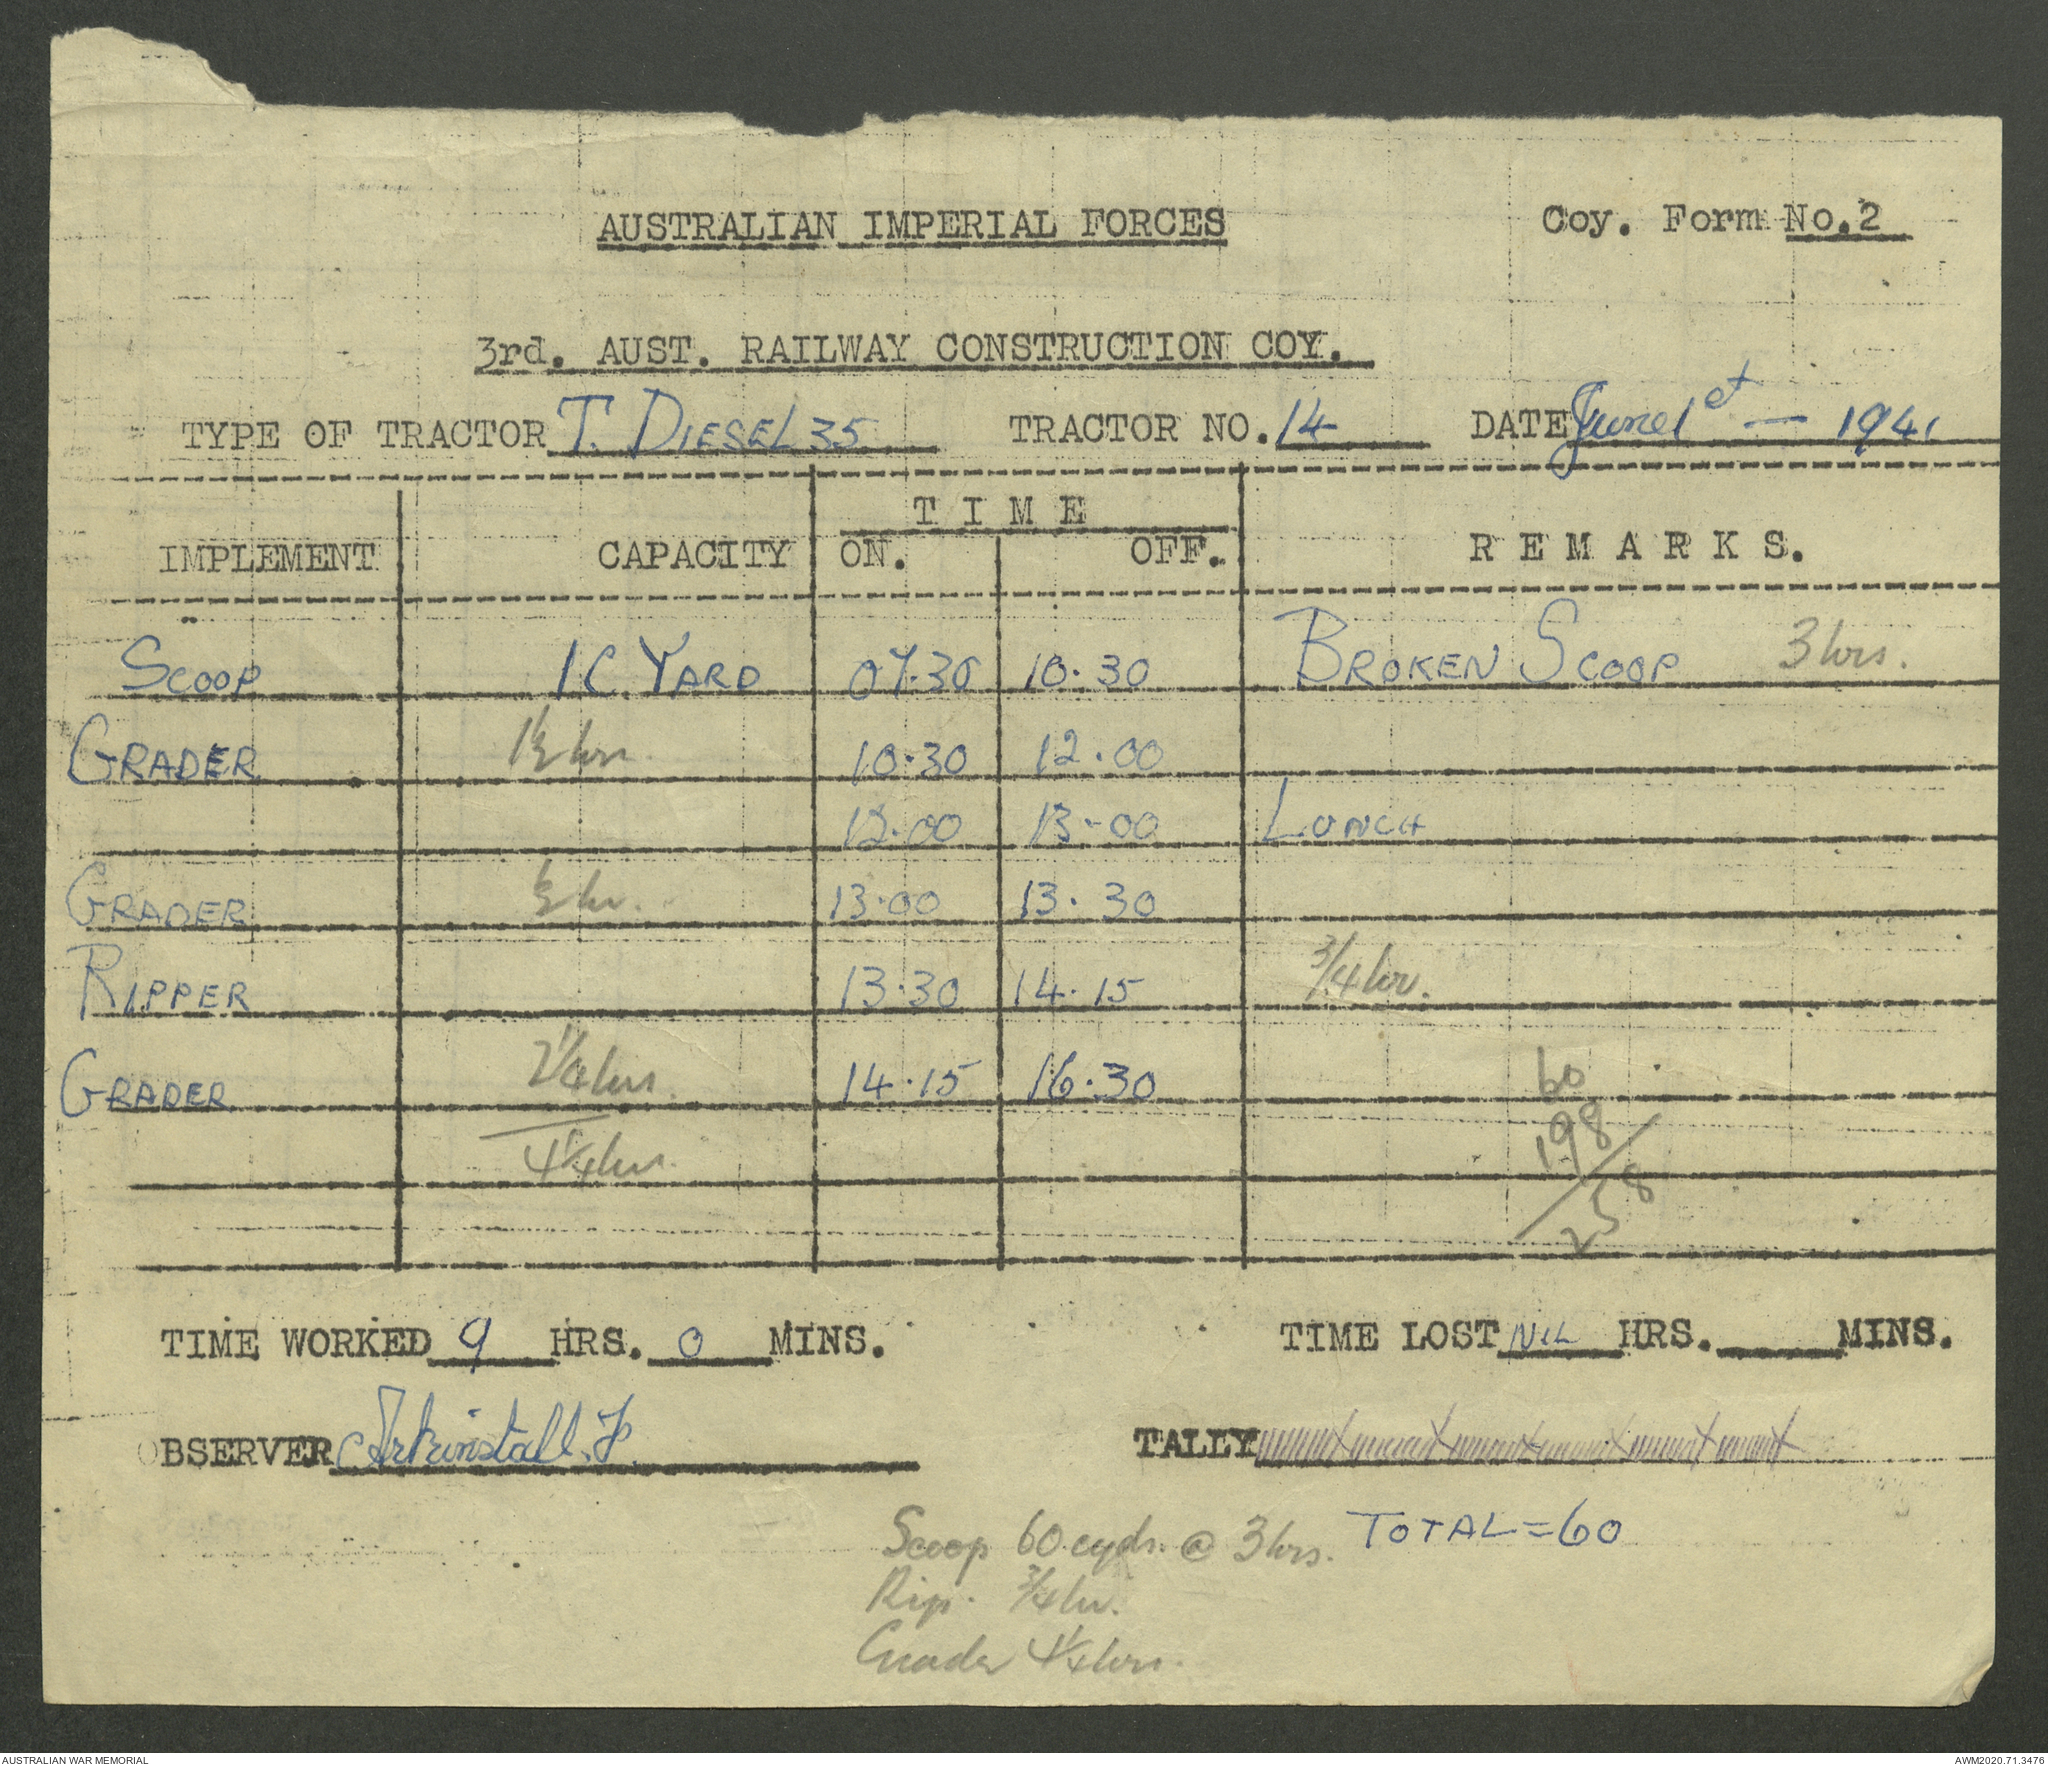 AUSTRALIAN IMPERIAL FORCES Coy. Form No.2
3rd. AUST. RAILWAY CONSTRUCTION COY.
TYPE OF TRACTOR T. DIESEL 35 TRACTOR NO. 14 DATE June 1st — 1941
T I M E
IMPLEMENT CAPACITY ON. OFF. R E M A R K S.
SCOOP 1 C. YARD 07.30 10.30 BROKEN SCOOP 3 hrs.
GRADER 1½ hrs 10.30 12.00
12.00 13-00 LUNCH
GRADER ½ hr. 13.00 13.30
RIPPER 13.30 14.15 3/4 hr.
GRADER 2¼ hrs. 14.15 16.30 60
4¼ hrs. 198
258
TIME WORKED 9 HRS. 0 MINS. TIME LOST NIL HRS. MINS.
OBSERVER Arkinstall. F. TALLY
Scoop 60 cyds. @ 3 hrs. TOTAL = 60
Rip. 3/4 hr.
Grader 4¼ hrs.
AUSTRALIAN WAR MEMORIAL AWM2020.71.3476